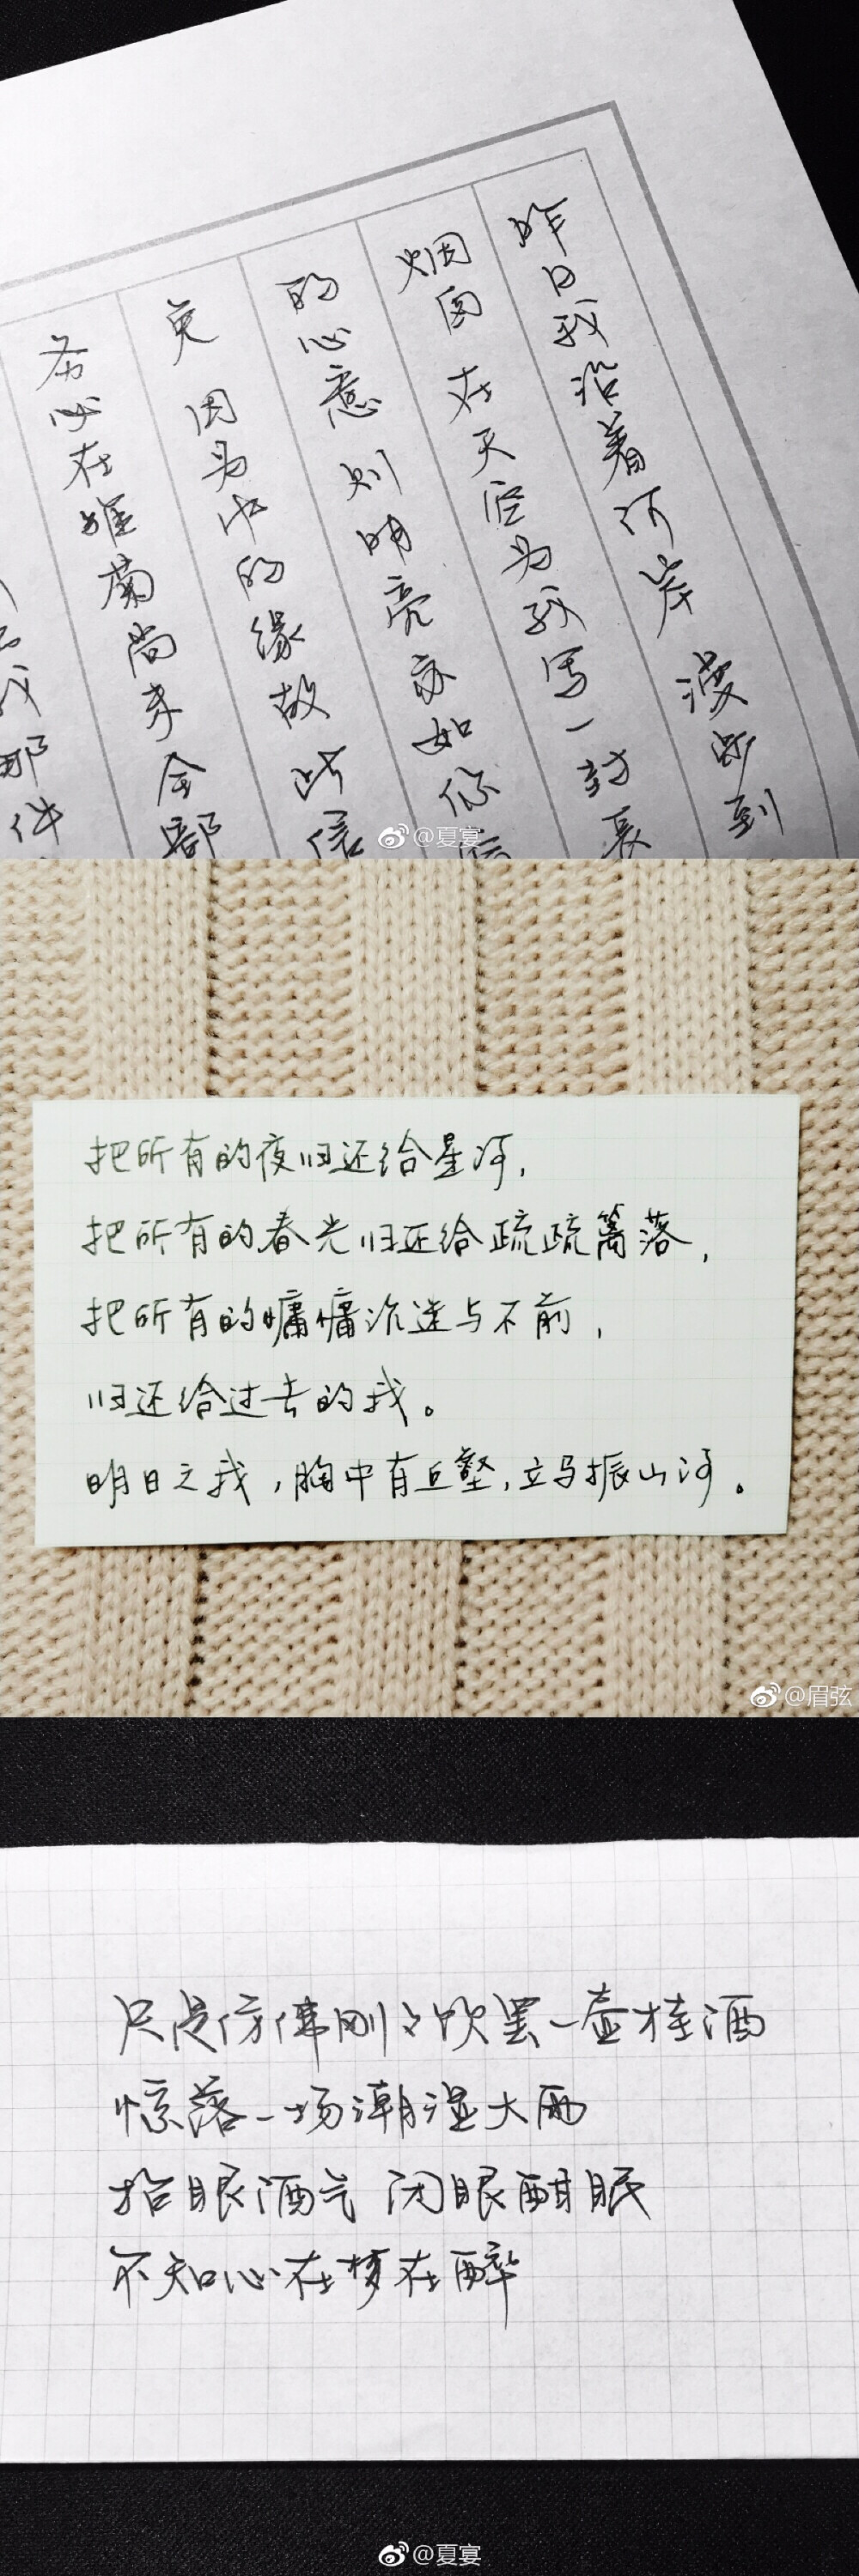 昨日我沿着河岸 漫步到
烟囱 在天空为我写一封长
的心意 则明亮亦如你窗
免 因为中的缘故 此信
务必在雏菊尚未全部
那件
@夏宴
把所有的夜归还给星河，
把所有的春光归还给疏疏篱落，
把所有的慵慵沉迷与不前，
归还给过去的我。
明日之我，胸中有丘壑，立马振山河。
@眉弦
只是仿佛刚刚饮罢一壶桂酒
惊落一场潮湿大雨
抬眼酒气 闭眼酣眠
不知心在梦在醉
@夏宴